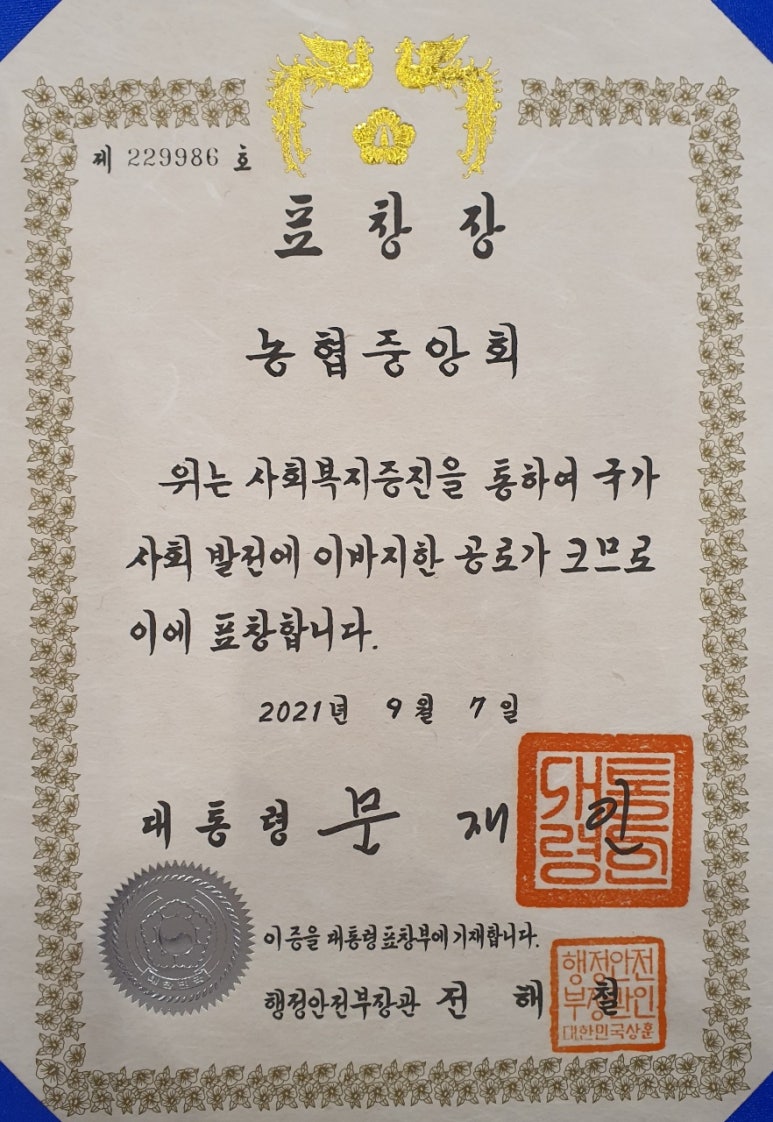 제 229986 호
표 창 장
농협중앙회
위는 사회복지증진을 통하여 국가
사회 발전에 이바지한 공로가 크므로
이에 표창합니다.
2021년 9월 7일
대통령 문재인
대통령인
이 증을 대통령표창부에 기재합니다.
행정안전부장관 전해철
행정안전
부장관인
대한민국상훈